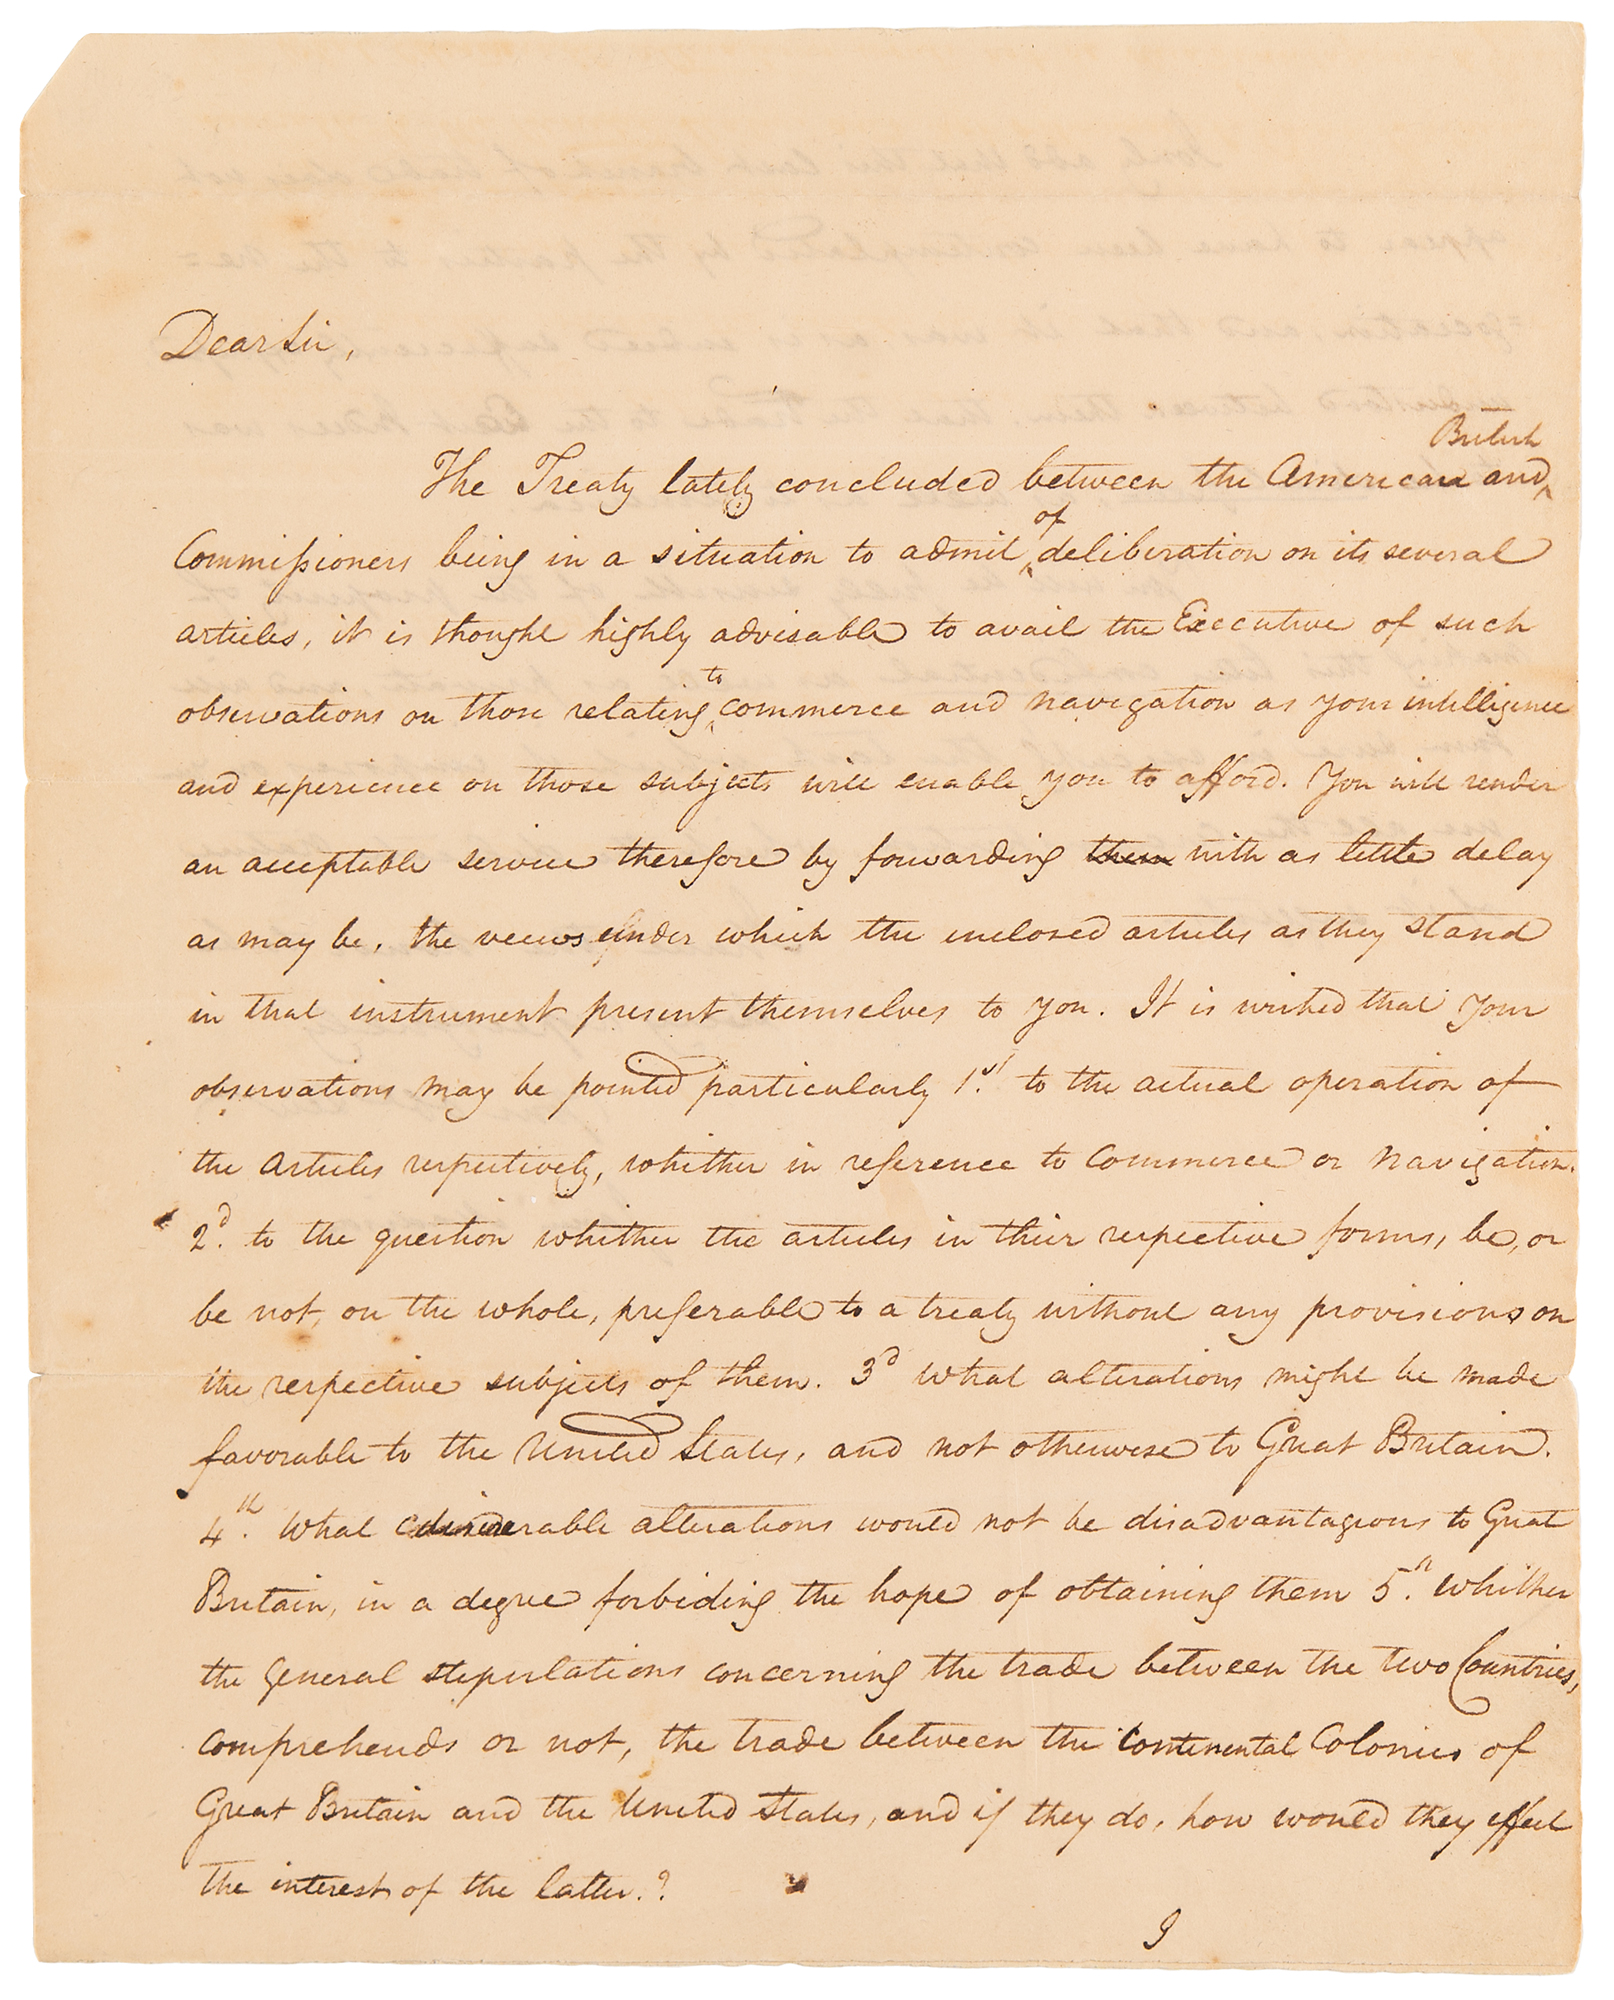 Dear Sir,
British
The Treaty lately concluded between the American and ‸
of
Commissioners being in a situation to admit ‸ deliberation on its several
articles, it is thought highly advisable to avail the Executive of such
to
observations on those relating ‸ commerce and navigation as your intelligence
and experience on those subjects will enable you to afford. You will render
an acceptable service therefore by forwarding them with as little delay
as may be, the views under which the inclosed articles as they stand
in that instrument present themselves to you. It is wished that your
observations may be pointed particularly 1.st to the actual operation of
the articles respectively, whether in reference to Commerce or navigation.
2.d to the question whether the articles in their respective forms, be, or
be not, on the whole, preferable to a treaty without any provisions on
the respective subjects of them. 3d What alterations might be made
favorable to the United States, and not otherwise to Great Britain.
4.th What alterations would not be disadvantageous to Great
Britain, in a degree forbiding the hope of obtaining them 5.th Whether
the general stipulations concerning the trade between the two Countries,
comprehends or not, the trade between the Continental Colonies of
Great Britain and the United States, and if they do, how would they effect
the interest of the latter.?
I